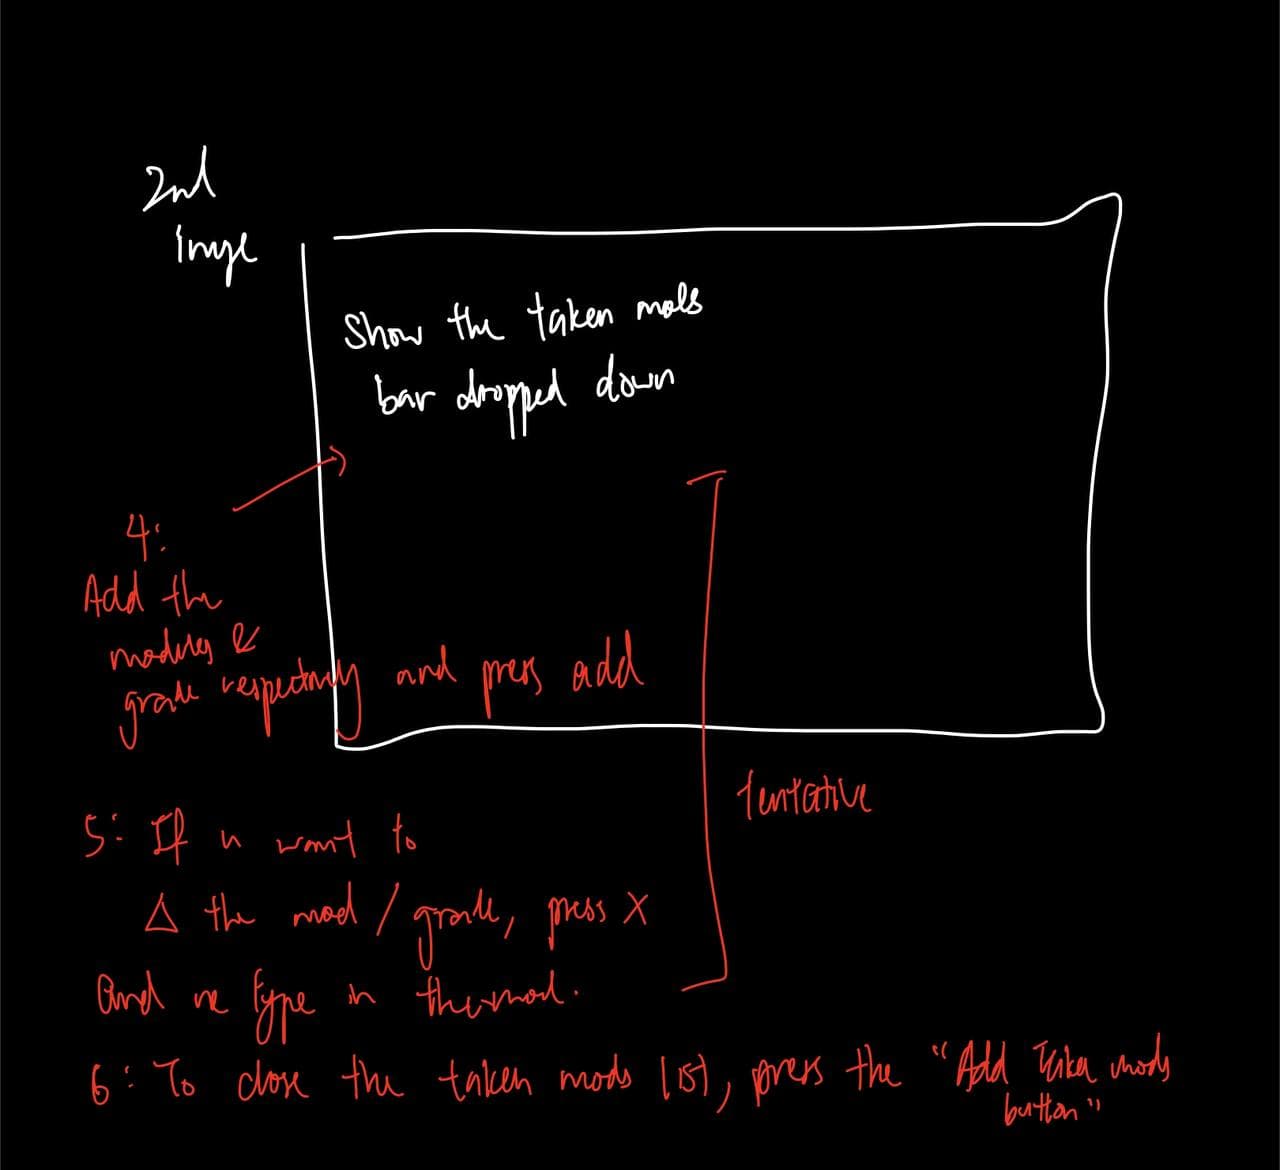 2nd
image
Show the taken mods
bar dropped down
4:
Add the
modules &
grade respectively and press add
tentative
5: If u want to
Δ the mod / grade, press X
And re type in the mod.
6: To close the taken mods list, press the "Add Taken mods
button"